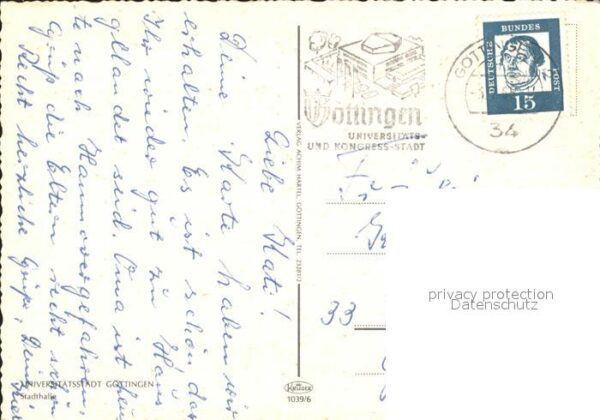 Liebe Kati!
Deine Karte haben wir
erhalten. Es ist schön, daß
Ihr wieder gut zu Haus
gelandet seid. Oma ist heu
te nach Hannover gefahren.
Grüß die Eltern recht schön
Recht herzliche Grüße, Deine
UNIVERSITÄTSSTADT GÖTTINGEN
Stadthalle
VERLAG ACHIM HÄRTEL, GÖTTINGEN, TEL.
Krüger
1039/6
Göttingen
UNIVERSITÄTS-
UND KONGRESS-STADT
34
DEUTSCHE
BUNDES
POST
15
33
privacy protection
Datenschutz